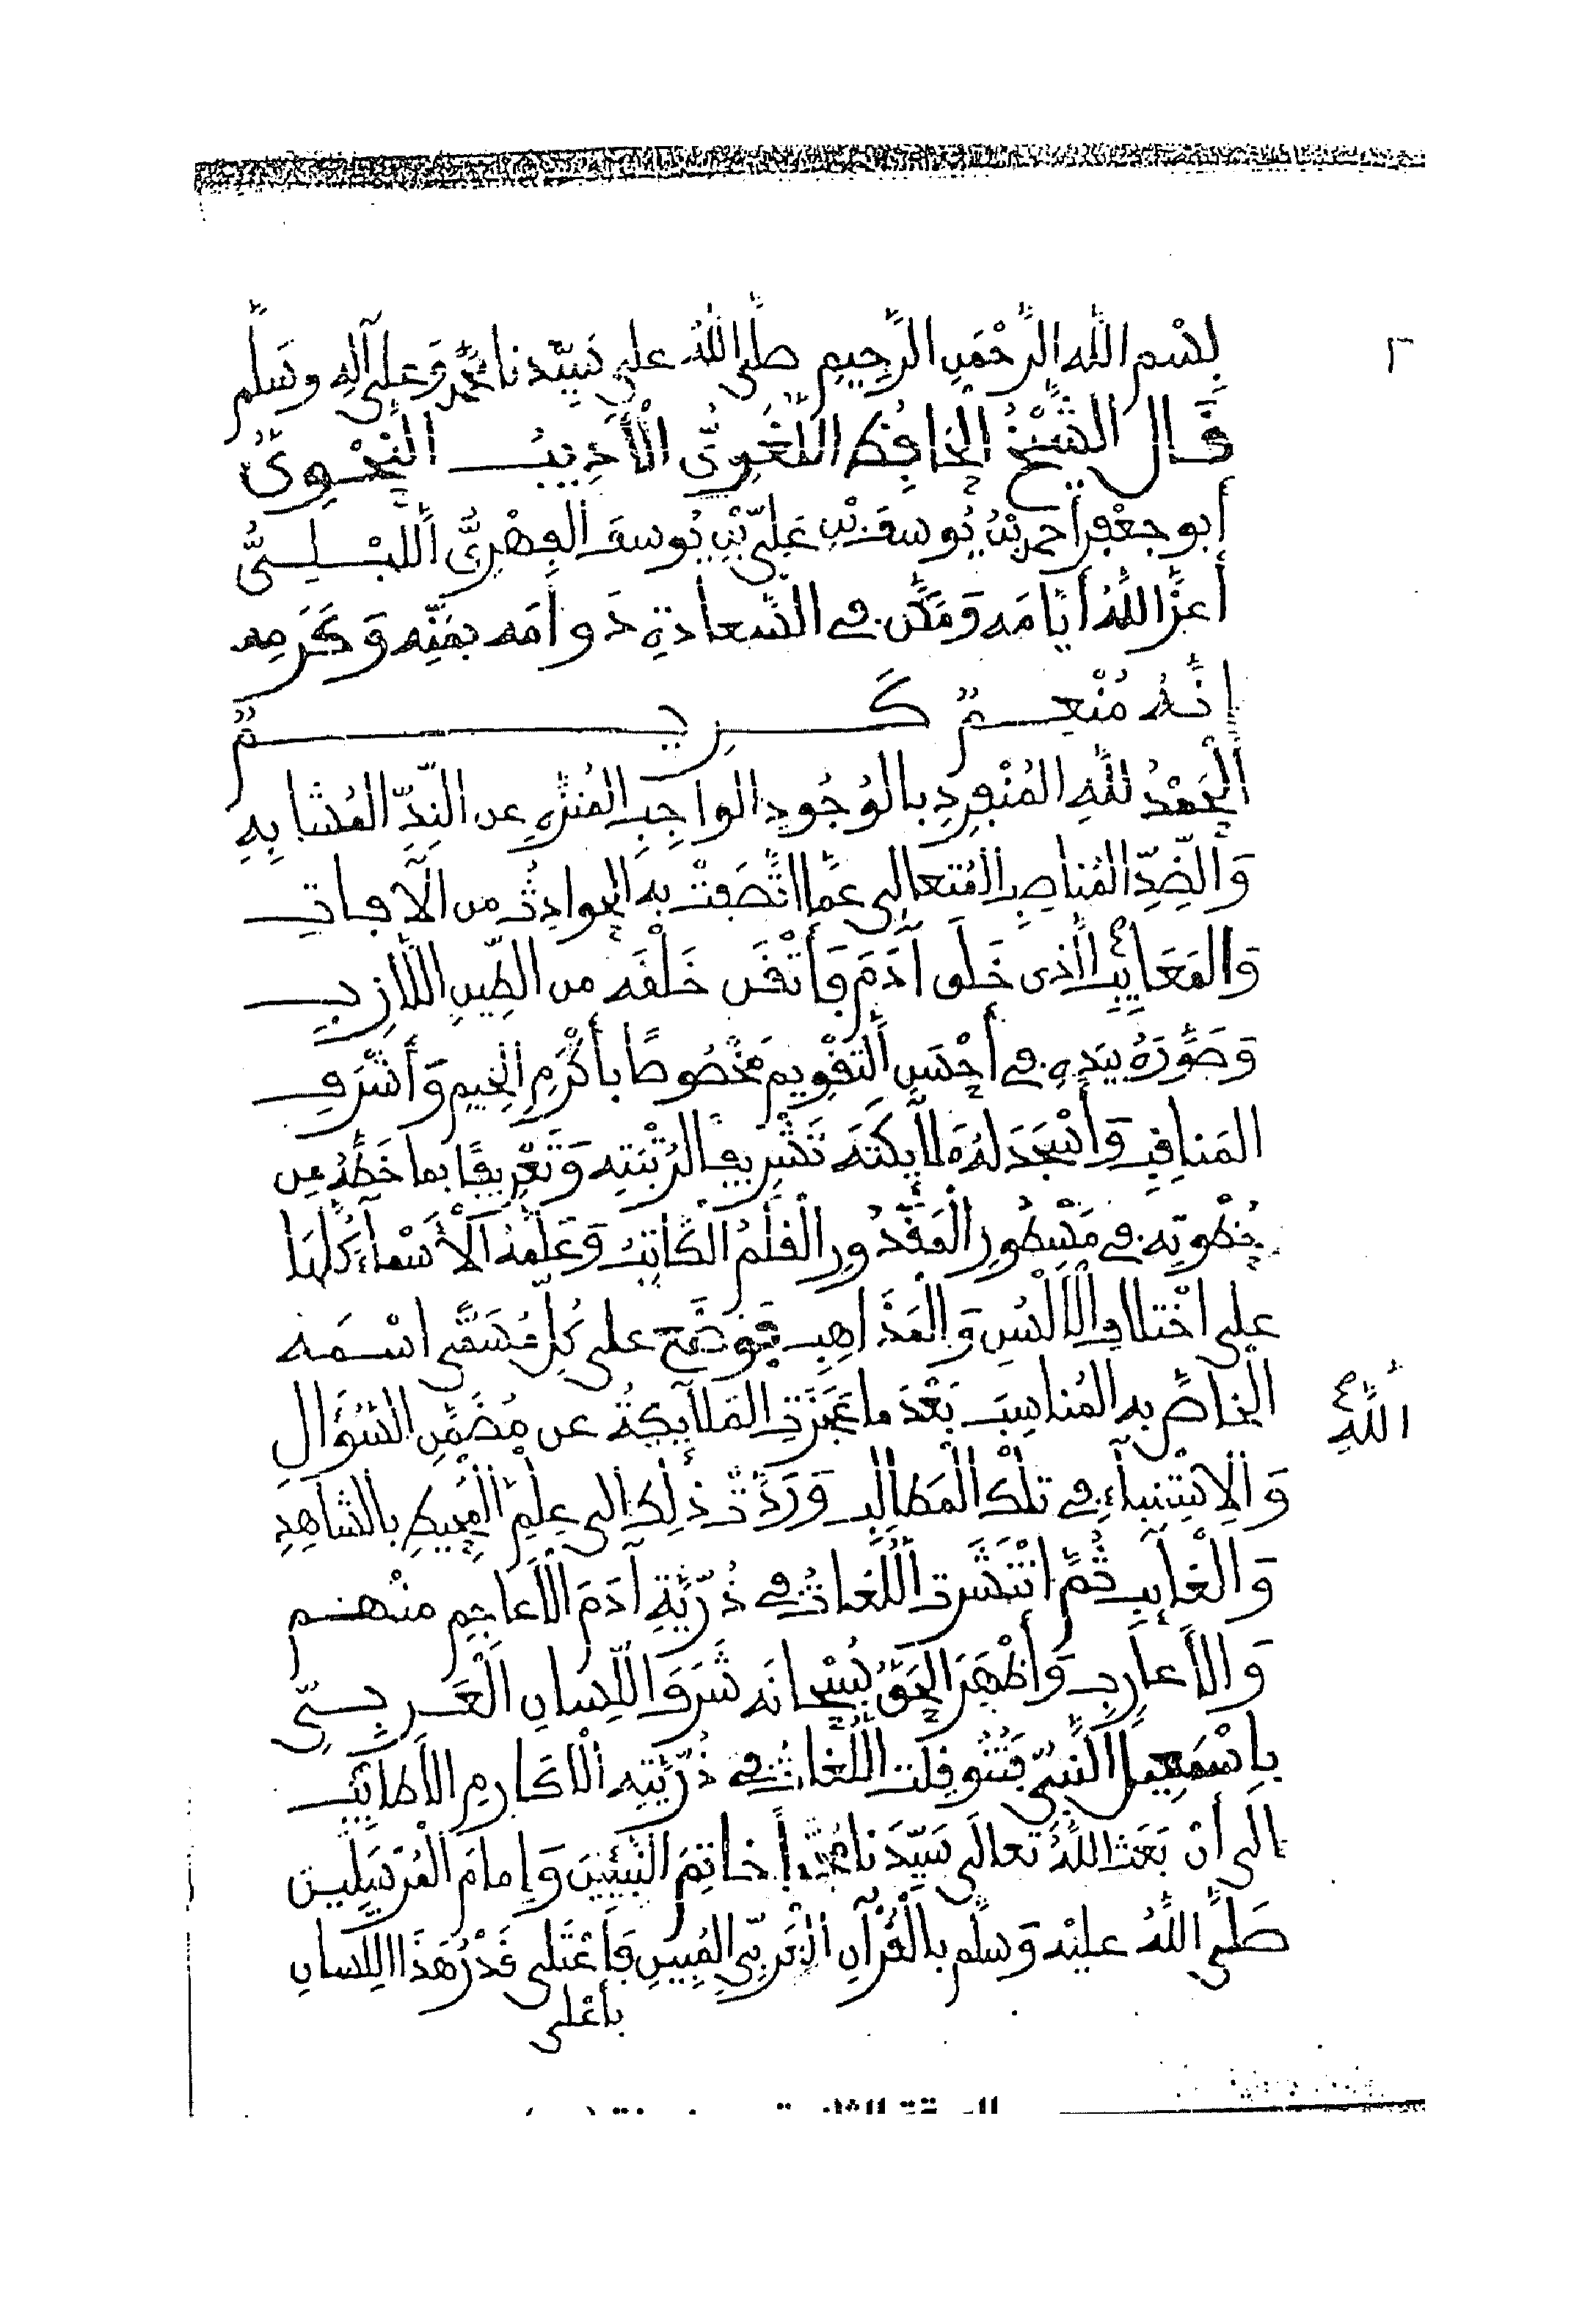 ٢
بِسْمِ اللَّهِ الرَّحْمَنِ الرَّحِيمِ صَلَّى اللَّهُ عَلَى سَيِّدِنَا مُحَمَّدٍ وَعَلَى آلِهِ وَسَلَّم
قَالَ الشَّيْخُ الحَافِظُ اللُّغَوِيُّ الْأَدِيبُ النَّحْوِيُّ
أَبو جَعْفَرٍ أَحمد بْنُ يُوسفَ بْنِ عَلِيِّ بْنِ يُوسفَ الفِهْرِيُّ اللَّبْلِيُّ
أَعَزَّ اللَّهُ أَيَّامَه وَمَكَّن في السَّعادَةِ دَوامَه بِمَنِّه وَكَرَمِه
إِنَّهُ مُنْعِمٌ كَرِيمٌ
أَلْحَمْدُ لِلَّهِ المُنْفَرِدِ بالوُجُودِ الواجِبِ المُنَزَّهِ عن النِّدِّ المُشَابِهِ
وَالضِّدِّ المُناصِبِ المُتَعالِي عَمَّا اتَّصَفَتْ بِهِ الحوادِثُ من الْآفاتِ
وَالمَعَايِبِ الَّذى خَلَقَ آدَمَ وَأَتْقَنَ خَلْقَه من الطِّينِ اللَّازِبِ
وَصَوَّرَهُ بِيَدِهِ في أَحْسَنِ التَّقْوِيمِ مَخْصُوصًا بأَكْرَمِ الخِيمِ وَأَشْرَفِ
المَناقِبِ وَأَسْجَدَ لَهُ مَلَائِكَتَه تَشْرِيفًا لرُتْبَتِه وَتَعْرِيفًا بما خَطَّهُ مِن
حُظْوَتِه في مَسْطُورِ الْمَقْدُورِ الْقَلَمُ الْكَاتِبُ وَعَلَّمَهُ الْأَسْمَاءَ كُلَّهَا
على اخْتلافِ الْأَلْسُنِ وَالْمَذَاهِبِ فَوَضَعَ على كُلِّ مُسَمًّى اسْمَه
الخَاصَّ به المُناسِبَ بَعْدَ ما عَجَزَتِ المَلَائِكَةُ عن مُضَمَّنِ السُّؤَالِ
وَالِاسْتِنْبَاءِ في تلْكَ الْمَطَالِبِ وَرَدَّتْ ذلِكَ إلى عِلْمِ المُحِيطِ بالشاهِدِ
اللَّهِ
وَالْغَائِبِ ثُمَّ انْتَشَرَتِ اللُّغاتُ في ذُرِّيَّةِ آدَمَ الأَعَاجِمِ منْهُم
وَالأَعارِبِ وَأَظْهَرَ الحَقُّ سُبْحانَه شَرَفَ اللِّسانِ الْعَرَبِيِّ
بِإِسْمَعِيلَ النَّبِيِّ فَتُنُوقِلَتِ اللُّغاتُ في ذُرِّيَّتِه الْأَكَارِمِ الأَطَايِبِ
إلى أَنْ بَعَثَ اللَّهُ تَعالَى سَيِّدَنا مُحَمَّداً خاتِمَ النَّبِيِّينَ وَإِمامَ الْمُرْسَلِينَ
صَلَّى اللَّهُ عليْه وَسلَّم بالْقُرْآنِ الْعَرَبِيِّ المُبِينِ فَاعْتَلَى قَدْرُ هَذَا اللِّسانِ
بأَعْلى